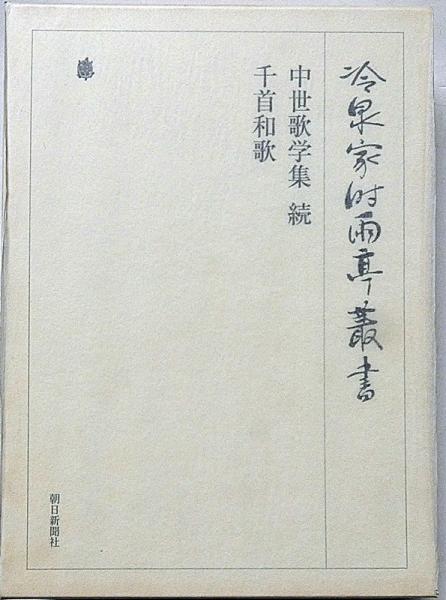 冷泉家時雨亭叢書
中世歌学集 続
千首和歌
朝日新聞社